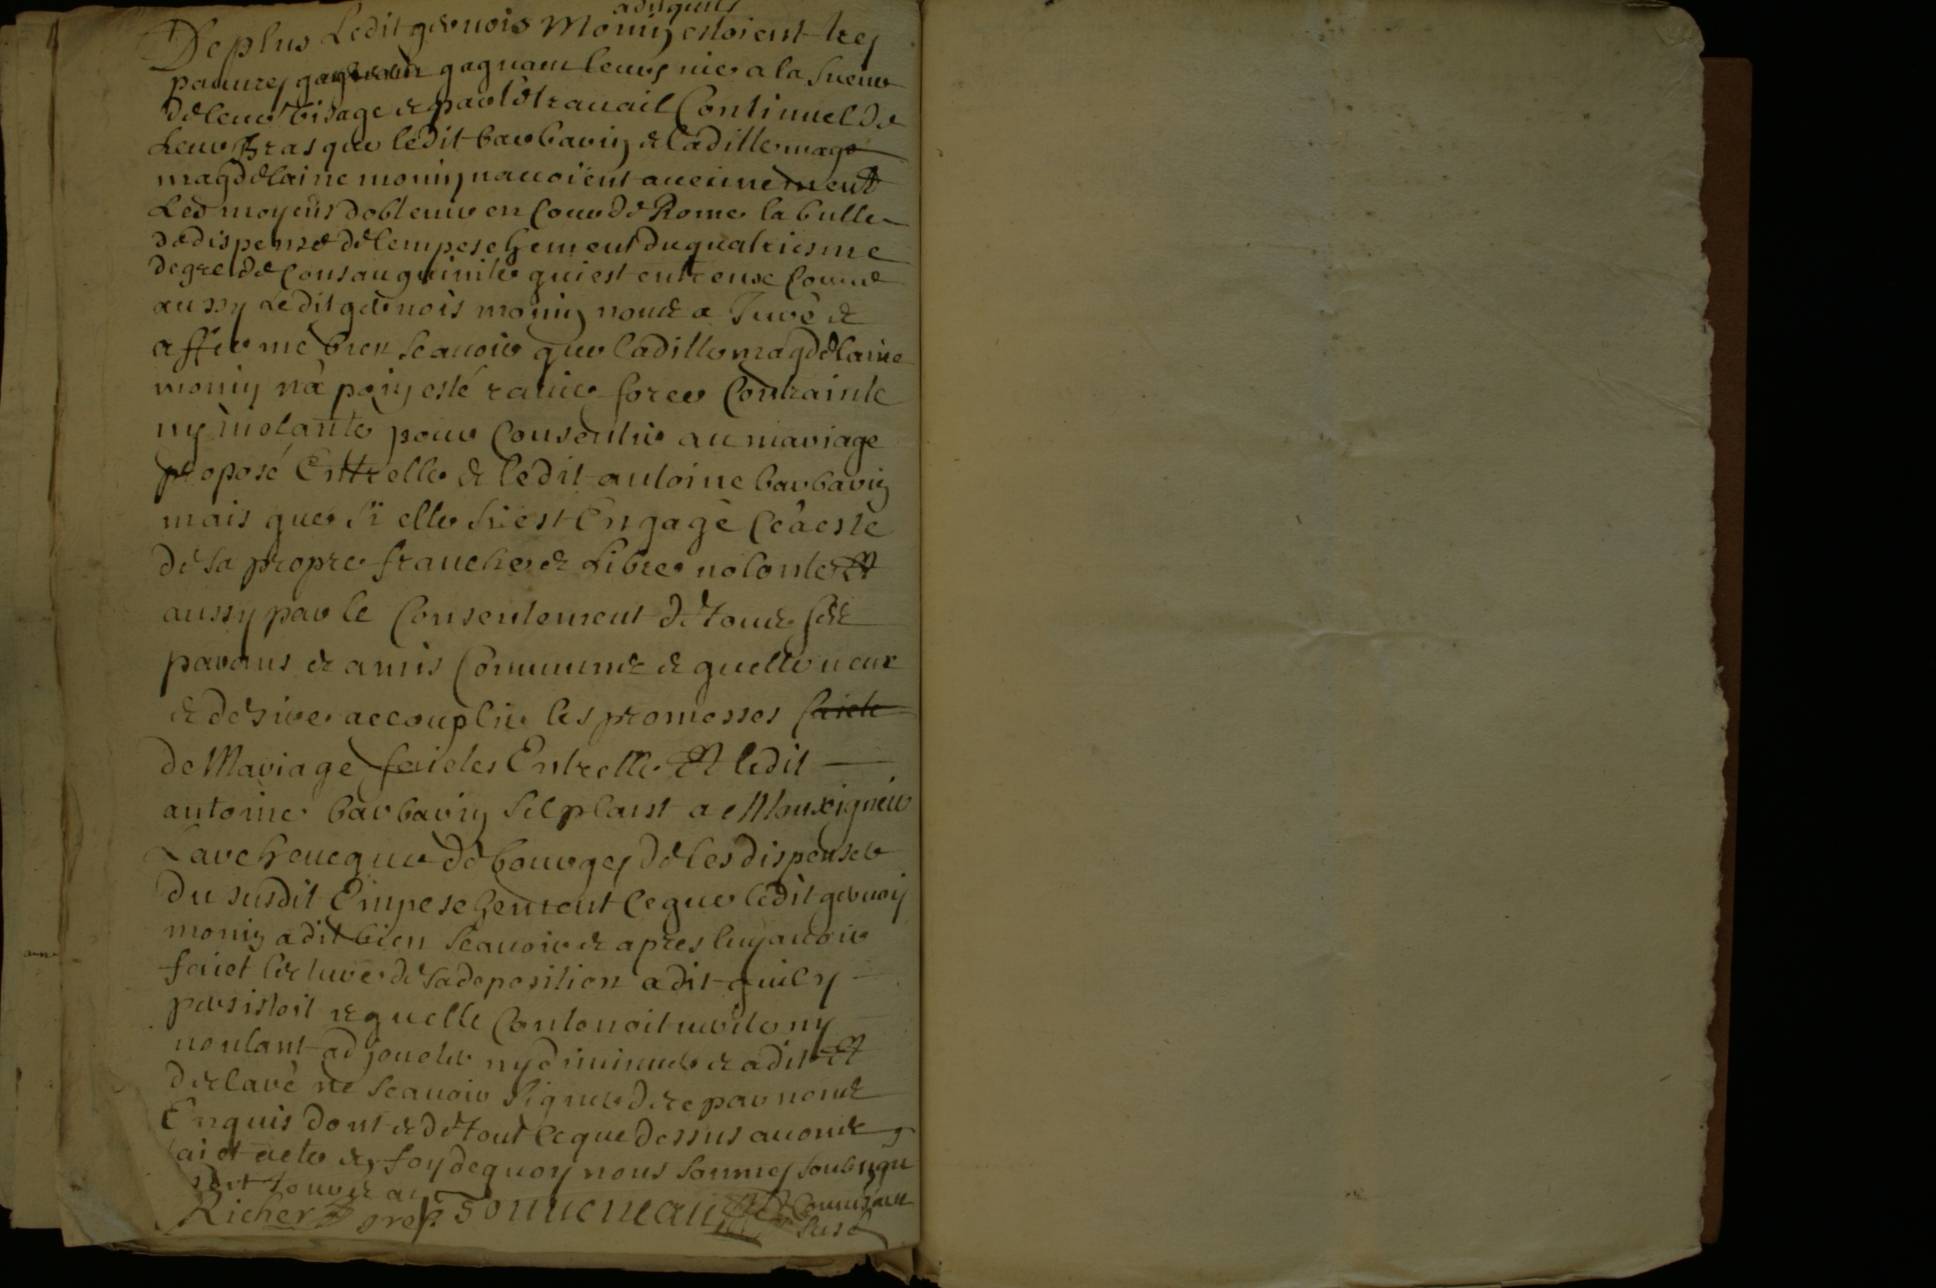 a dit quils
De plus Ledit genuois Monin estoient tres
pauures gagnant leurs uie a la sueur
de leur visage & par le trauail Continuel de
Leur bras que ledit barbarin & laditte mag
magdelaine monin nauoient aucunement
Les moyens dobtenir en Cour de Rome la bulle
de dispense de lempeschement du quatriesme
degre de Consanguinite qui est entreux Comme
aussy Ledit genuois monin nous a Juré &
affirmé bien scauoir que laditte magdelaine
monin na poin esté rauie forcee Contrainte
ny uiolantee pour Consentir au mariage
proposé Entrelle & ledit antoine barbarin
mais que si elle sy est Engagé Ce a esté
de sa propre franche & Libre uolonte Et
aussy par le Consentement de tous ses
parans & amis Communs & quelle ueux
& desire accomplir les promesses faicte
de Mariage faictes Entrelle Et ledit
antoine barbarin sil plaist a Monseigneur
Larcheuesque de bourges de les dispenser
du susdit Empeschement Ce que ledit genuois
monin a dit bien scauoir & apres luy auoir
faict lecture de sa deposition a dit quil y
persistoit & quelle Contenoit uerite ny
uoulant adjouter ny diminuer & a dit Et
declaré ne scauoir signer de ce par nous
Enquis dont & de tout Ce que dessus auons
faict acte En foy de quoy nous sommes soubsigne
Richer gref Commissaire
susd